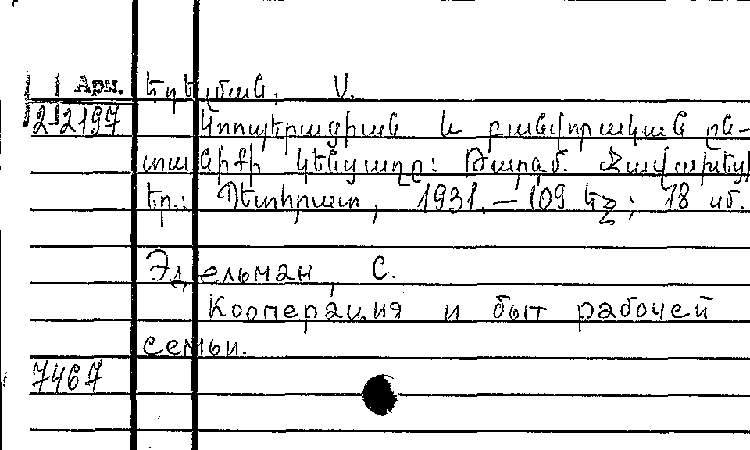 Арм. Եդելման, Ս.
2-2197
Կոոպերացիան և բանվորական ըն-
տանիքի կենցաղը: Թարգմ. Հավախեց
եր.: Պետհրատ, 1931.— 109 եջ; 18 սմ.
Эдельман, С.
Кооперация и быт рабочей
семьи.
7467